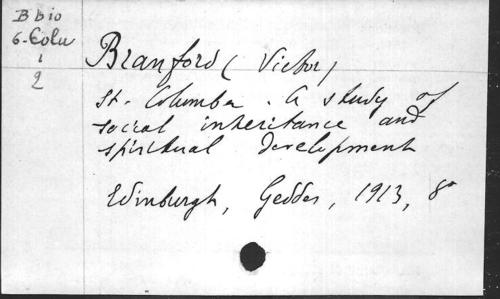 B bio
6-Colu
1
2
Branford (Victor)
St. Columba. A study of
social inheritance and
spiritual development
Edinburgh, Geddes, 1913, 8°